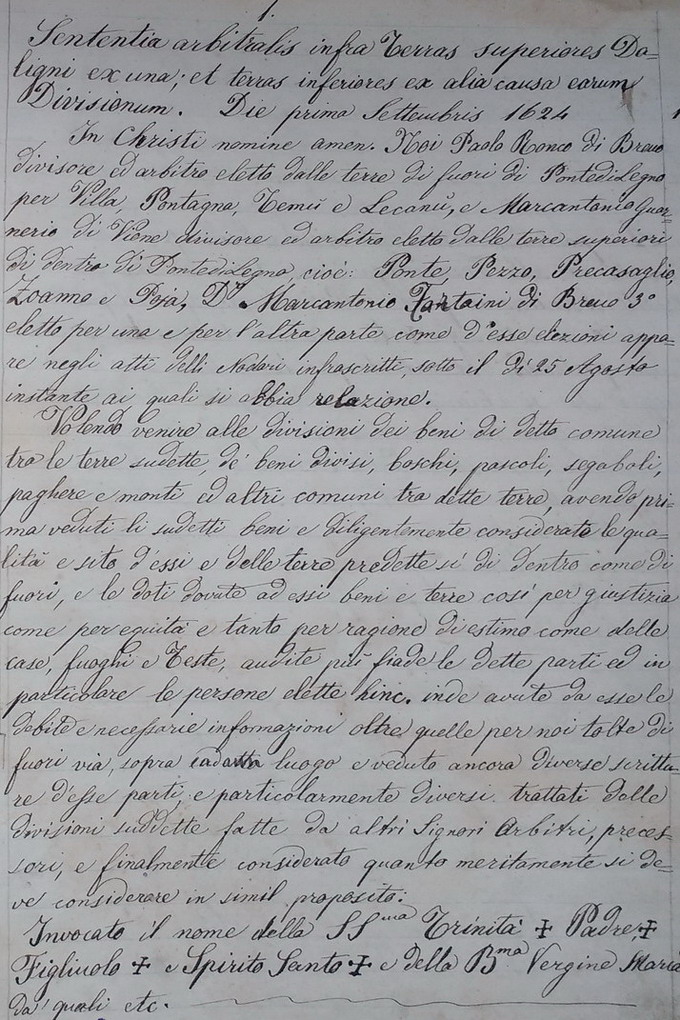 1.
Sententia arbitralis infra Terras superiores Da=
ligni ex una; et terras inferiores ex alia causa earum
Divisionum. Die prima Settembris 1624
In Christi nomine amen. Noi Paolo Ronco di Breno
divisore ed arbitro eletto dalle terre di fuori di PontediLegno
per Villa, Pontagna, Temù e Lecanù, e Marcantonio Guar=
nerio di Vione divisore ed arbitro eletto dalle terre superiori
di dentro di PontediLegno, cioè: Ponte, Pezzo, Precasaglio,
Zoanno e Poja, D. Marcantonio di Breno 3°
eletto per una e per l'altra parte come d'esse elezioni appa=
re negli atti delli Nodari infrascritti, sotto il dì 25 Agosto
instante ai quali si abbia relazione.
Volendo venire alle divisioni dei beni di detto comune
tra le terre sudette, de' beni divisi, boschi, pascoli, segaboli,
paghere e monti ed altri comuni tra dette terre, avendo pri=
ma veduti li sudetti beni e diligentemente considerato le qua=
lità e sito d'essi e delle terre predette sì di dentro come di
fuori, e le doti dovute ad essi beni e terre così per giustizia
come per equità e tanto per ragione di estimo come delle
case, fuoghi e Teste, audite più fiade le dette parti ed in
particolare le persone elette hinc. inde avute da esse le
debite e necessarie informazioni oltre quelle per noi tolte di
fuori via, sopra luogo e veduto ancora diverse scrittu=
re d'esse parti, e particolarmente diversi trattati delle
divisioni suddette fatte da altri Signori Arbitri, preces=
sori, e finalmente considerato quanto meritamente si de=
ve considerare in simil proposito:
Invocato il nome della SS.ma Trinità ✠ Padre ✠
Figliuolo ✠ e Spirito Santo ✠ e della B.ma Vergine Maria
da' quali etc.